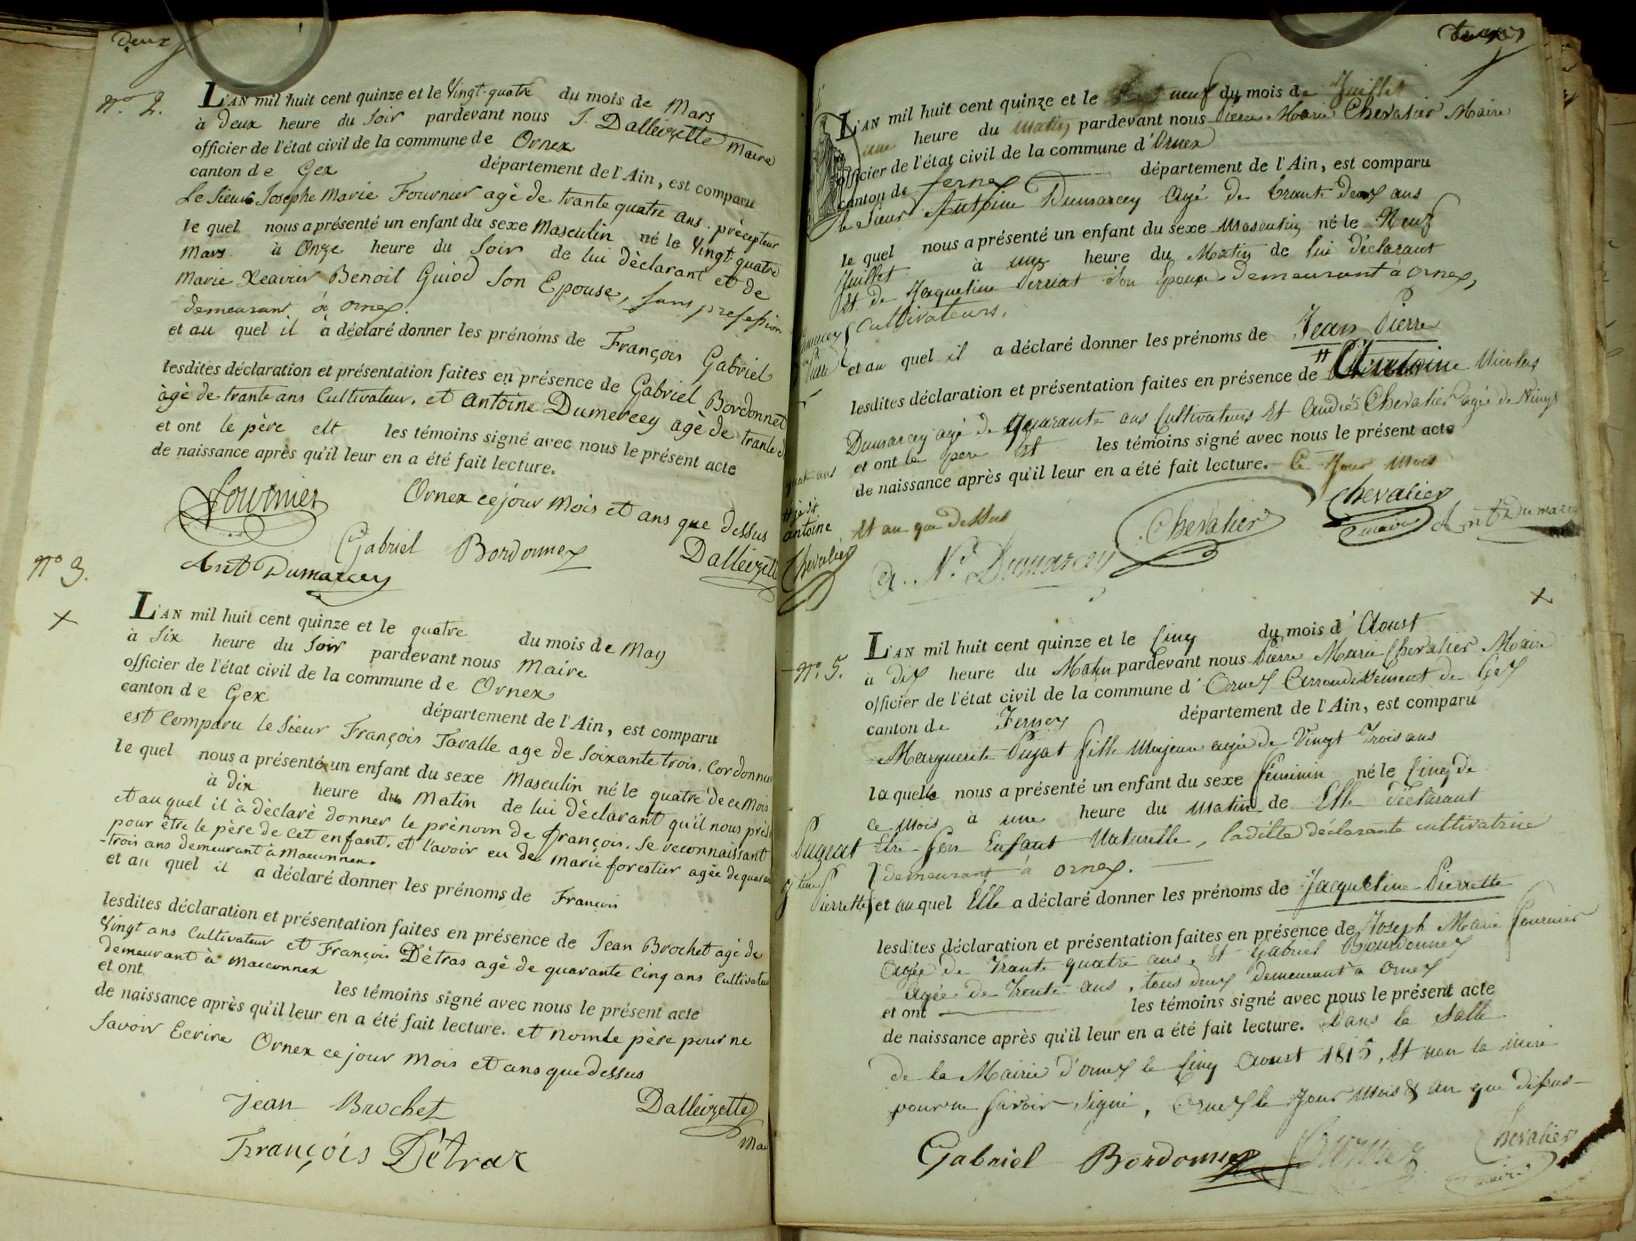 deux
n.º 2.
L'AN mil huit cent quinze et le Vingt-quatre du mois de Mars
à deux heure du Soir pardevant nous J. Dalleizette Maire
officier de l'état civil de la commune de Ornex
canton de Gex département de l'Ain, est comparu
Le Sieur Josephe Marie Fournier agè de trante quatre ans. prècepteur
le quel nous a présenté un enfant du sexe Masculin né le Vingt-quatre
Mars à Onze heure du Soir de lui dèclarant et de
Marie Xeavier Benoit Guiod Son Epouse, Sans profession
demeurant à ornex.
et au quel il à déclaré donner les prénoms de François Gabriel
lesdites déclaration et présentation faites en présence de Gabriel Bordonnet
àgè de trante ans Cultivateur. et antoine Dumercey agè de trante d
et ont le père ett les témoins signé avec nous le présent acte
de naissance après qu'il leur en a été fait lecture.
Ornex ce jour mois et ans que dessus
Fournier
Gabriel Bordonnex Dalleizette
Ant Dumarcey
nº 3.
L'AN mil huit cent quinze et le quatre du mois de May
à Six heure du Soir pardevant nous Maire
officier de l'état civil de la commune de Ornex
canton de Gex département de l'Ain, est comparu
est Comparu le Sieur François Favalle age de Soixante trois. Cordonnier
le quel nous a présenté un enfant du sexe Masculin né le quatre de ce Mois
à dix heure du Matin de lui dèclarant qu'il nous près
et au quel il à dèclarè donner le prènom de françois. Se reconnaissant
pour être le père de Cet enfant. et l'avoir eu de marie forestier agèe de quaran
-trois ans demeurant à Maconnex.
et au quel il a déclaré donner les prénoms de Francois
lesdites déclaration et présentation faites en présence de Jean Brochet agè de
Vingt ans Cultivateur et François Dètras agè de quarante Cinq ans Cultivateur
demeurant à Maconnex
et ont les témoins signé avec nous le présent acte
de naissance après qu'il leur en a été fait lecture. et non le père pour ne
Savoir Ecrire Ornex ce jour mois et ans que dessus
Jean Brochet Dalleizette
François Dètraz Ma
L'AN mil huit cent quinze et le neuf du mois de Juillet
une heure du matin pardevant nous Pierre Marie Chevalier Maire
officier de l'état civil de la commune d'Ornex
canton de ferney département de l'Ain, est comparu
le Sieur Antoine Dumarcey agé de trante deux ans
le quel nous a présenté un enfant du sexe masculin né le Neuf
Juillet à une heure du Matin de lui déclarant
Et de Jaqueline Son Epouse demeurant à ornex,
Cultivateurs.
et au quel il a déclaré donner les prénoms de Jean Pierre
lesdites déclaration et présentation faites en présence de # Antoine Nicolas
Dumarcey agé de quarante ans Cultivateurs Et André Chevalier agée de Vingt
et ont le pere Et les témoins signé avec nous le présent acte
de naissance après qu'il leur en a été fait lecture. Ce Jour mois
Et an que dessus
antoine
Chevalier
Chevalier Chevalier maire Ant Dumarcey
Nˢ Dumarcey
Nº. 5.
L'AN mil huit cent quinze et le Cinq du mois d'Aoust
à dix heure du Matin pardevant nous Pierre Marie Chevalier Maire
officier de l'état civil de la commune d'Ornex Arrondissement de Gex
canton de Ferney département de l'Ain, est comparu
Marguerite Pujat fille Majeure agée de Vingt Trois ans
la quelle nous a présenté un enfant du sexe féminin né le Cinq de
Ce mois à une heure du matin de Elle déclarant
Etre Son Enfant Naturelle, ladite déclarante cultivatrice
demeurant à ornex.
Pugeat
Pierrette
et au quel Elle a déclaré donner les prénoms de Jacqueline Pierrette
lesdites déclaration et présentation faites en présence de Joseph Marie fournier
agée de Trante quatre ans, Et Gabriel Bourdonnex
agée de Trente ans, tous deux demeurant à Ornex
et ont les témoins signé avec nous le présent acte
de naissance après qu'il leur en a été fait lecture. Dans la Salle
de la Mairie d'ornex le Cinq Aoust 1815, Et non la mère
pour ne Savoir Signé, Ornex le Jour mois & an que dessus
Gabriel Bordonnex Fournier Chevalier
maire